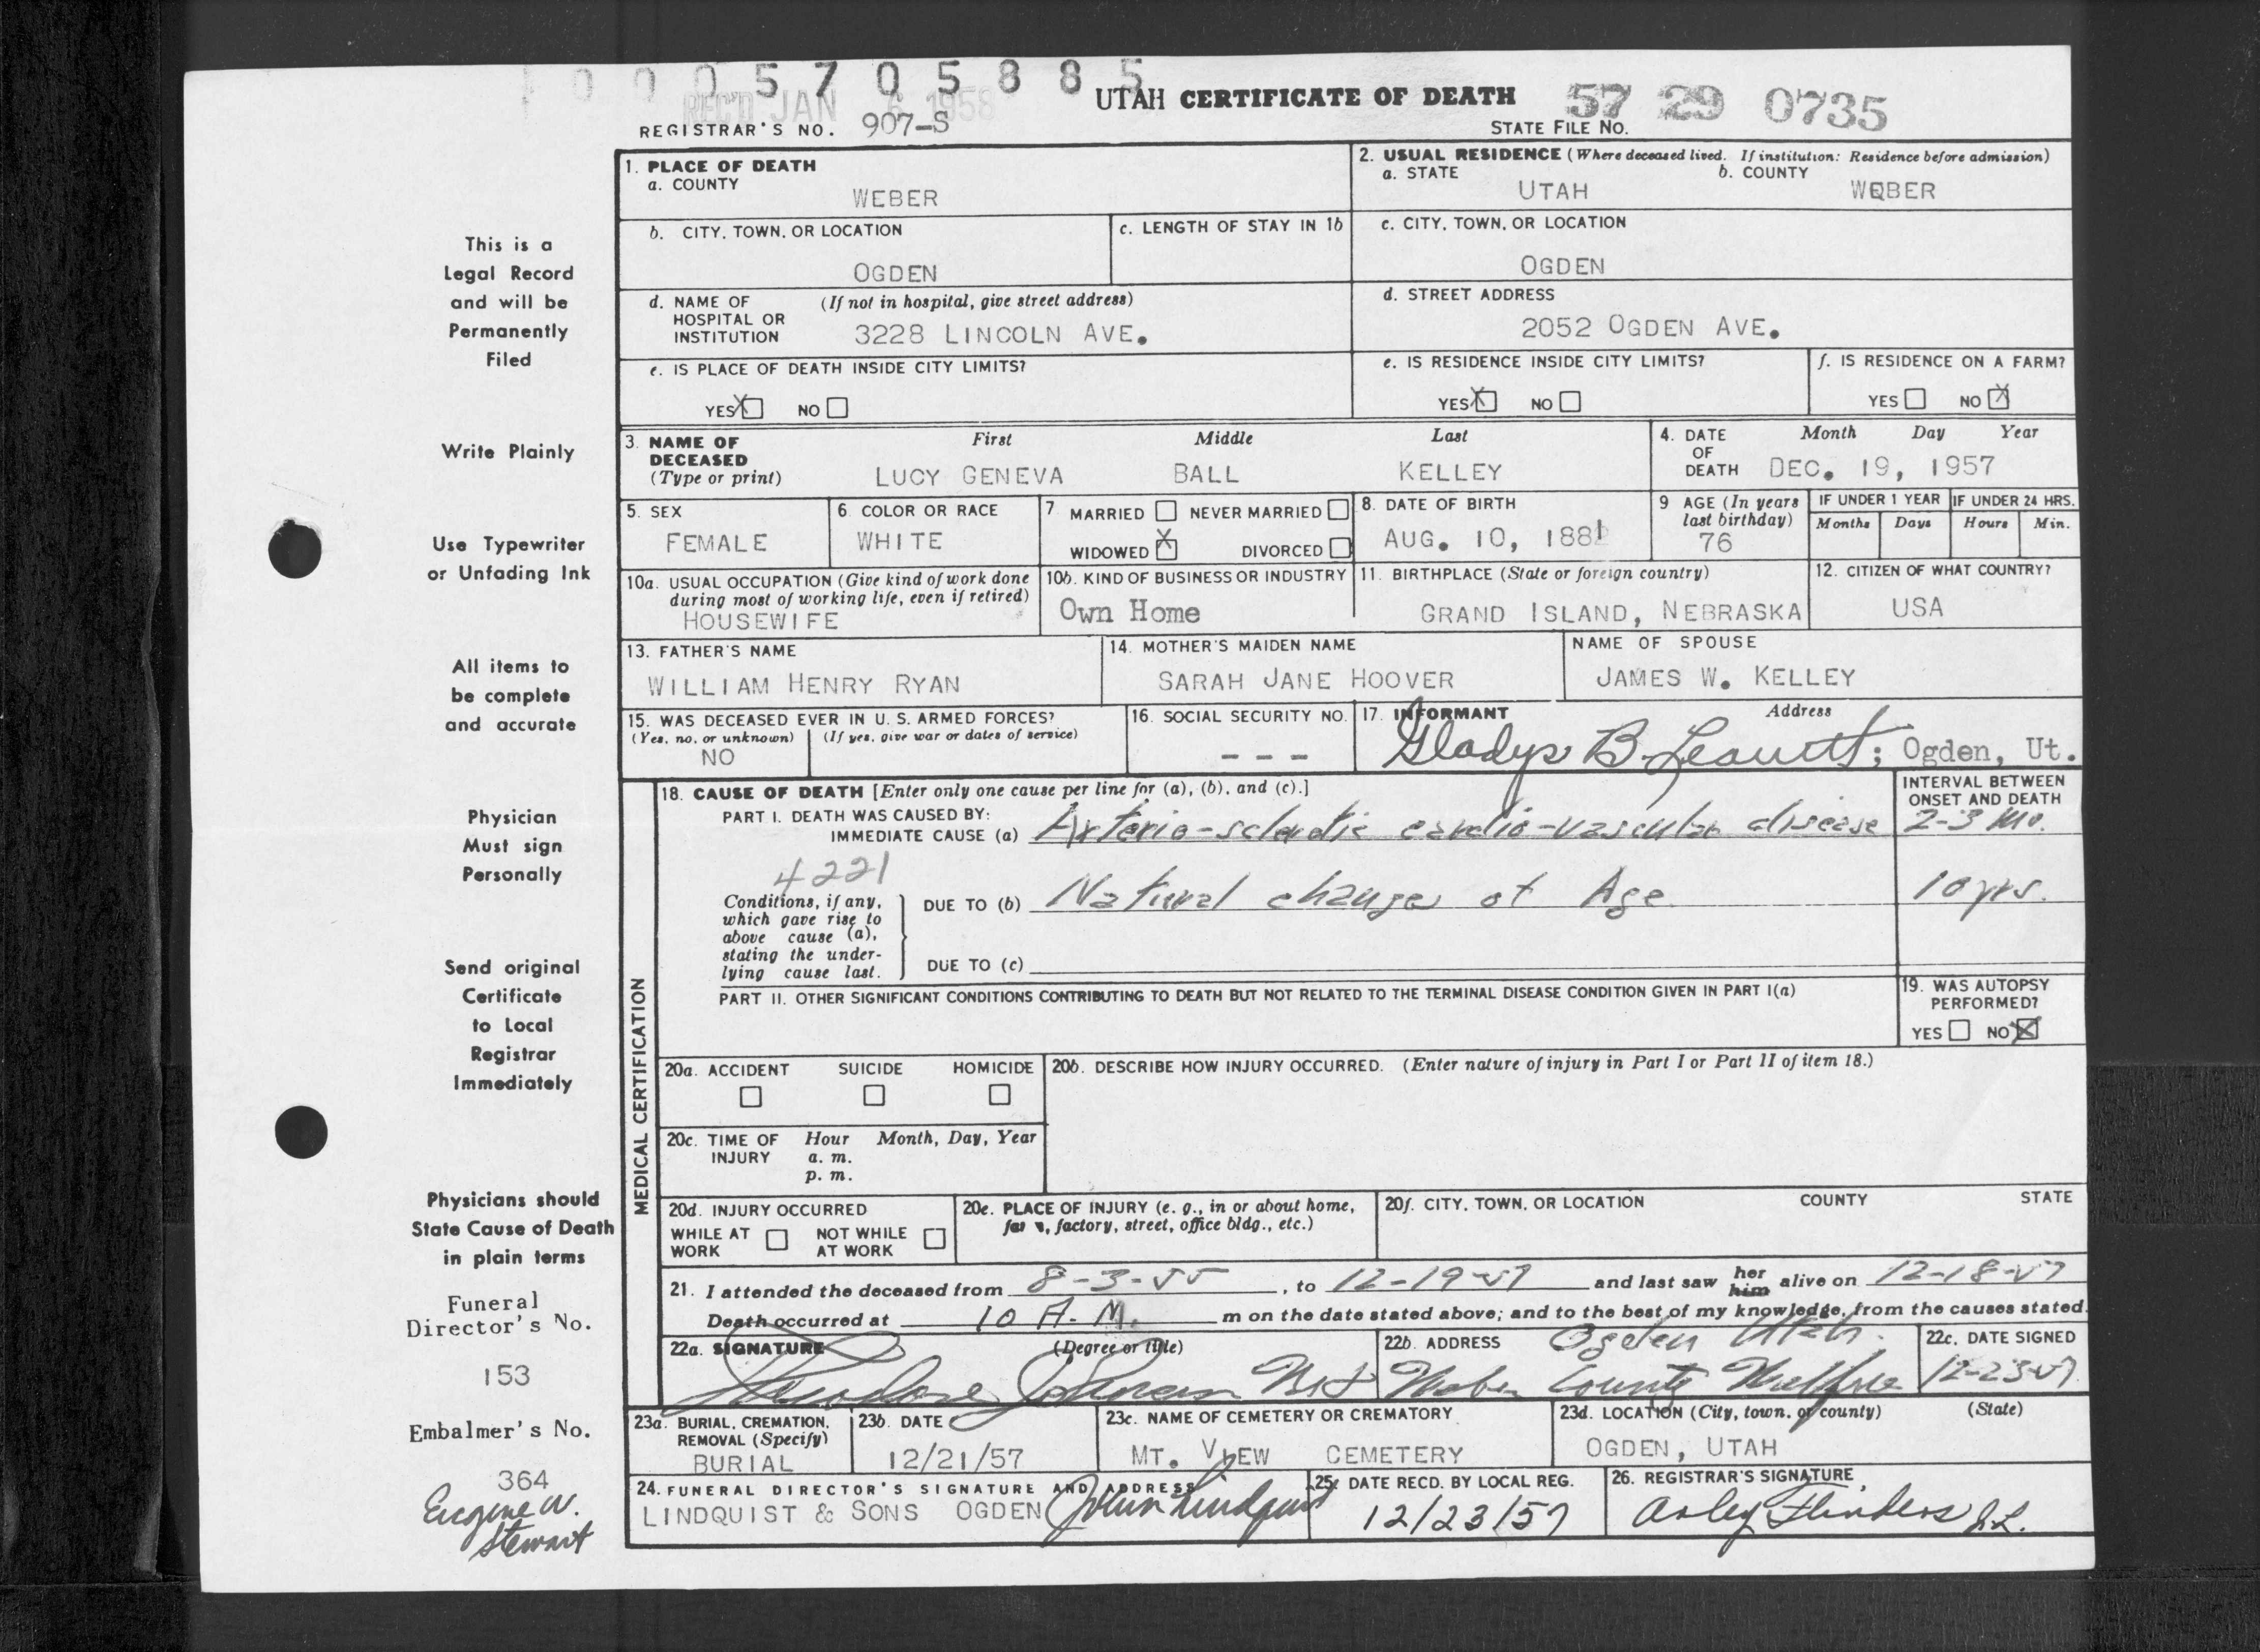 1 0 0 0 5 7 0 5 8 8 5
REC'D JAN 6 1958
UTAH CERTIFICATE OF DEATH
57 29 0735
REGISTRAR'S NO. 907-S
STATE FILE NO.
1. PLACE OF DEATH
a. COUNTY
WEBER
2. USUAL RESIDENCE (Where deceased lived. If institution: Residence before admission)
a. STATE
UTAH
b. COUNTY
WEBER
b. CITY, TOWN, OR LOCATION
OGDEN
c. LENGTH OF STAY IN 1b
c. CITY, TOWN, OR LOCATION
OGDEN
d. NAME OF HOSPITAL OR INSTITUTION
(If not in hospital, give street address)
3228 LINCOLN AVE.
d. STREET ADDRESS
2052 OGDEN AVE.
e. IS PLACE OF DEATH INSIDE CITY LIMITS?
YES X NO
e. IS RESIDENCE INSIDE CITY LIMITS?
YES X NO
f. IS RESIDENCE ON A FARM?
YES NO X
3. NAME OF DECEASED (Type or print)
First Middle Last
LUCY GENEVA BALL KELLEY
4. DATE OF DEATH
Month Day Year
DEC. 19, 1957
5. SEX
FEMALE
6. COLOR OR RACE
WHITE
7. MARRIED NEVER MARRIED
WIDOWED X DIVORCED
8. DATE OF BIRTH
AUG. 10, 1881
9 AGE (In years last birthday)
76
IF UNDER 1 YEAR
Months Days
IF UNDER 24 HRS.
Hours Min.
10a. USUAL OCCUPATION (Give kind of work done during most of working life, even if retired)
HOUSEWIFE
10b. KIND OF BUSINESS OR INDUSTRY
Own Home
11. BIRTHPLACE (State or foreign country)
GRAND ISLAND, NEBRASKA
12. CITIZEN OF WHAT COUNTRY?
USA
13. FATHER'S NAME
WILLIAM HENRY RYAN
14. MOTHER'S MAIDEN NAME
SARAH JANE HOOVER
NAME OF SPOUSE
JAMES W. KELLEY
15. WAS DECEASED EVER IN U. S. ARMED FORCES?
(Yes, no, or unknown) (If yes, give war or dates of service)
NO
16. SOCIAL SECURITY NO.
- - -
17. INFORMANT Address
Gladys B. Leavitt; Ogden, Ut.
MEDICAL CERTIFICATION
18. CAUSE OF DEATH [Enter only one cause per line for (a), (b), and (c).]
INTERVAL BETWEEN ONSET AND DEATH
PART I. DEATH WAS CAUSED BY:
IMMEDIATE CAUSE (a) Arterio-sclerotic cardio-vascular disease 2-3 Mo.
4221
Conditions, if any, which gave rise to above cause (a), stating the underlying cause last.
DUE TO (b) Natural changes of Age 10 yrs.
DUE TO (c)
PART II. OTHER SIGNIFICANT CONDITIONS CONTRIBUTING TO DEATH BUT NOT RELATED TO THE TERMINAL DISEASE CONDITION GIVEN IN PART I(a)
19. WAS AUTOPSY PERFORMED?
YES NO X
20a. ACCIDENT SUICIDE HOMICIDE
20b. DESCRIBE HOW INJURY OCCURRED. (Enter nature of injury in Part I or Part II of item 18.)
20c. TIME OF INJURY
Hour Month, Day, Year
a. m.
p. m.
20d. INJURY OCCURRED
WHILE AT WORK NOT WHILE AT WORK
20e. PLACE OF INJURY (e. g., in or about home, farm, factory, street, office bldg., etc.)
20f. CITY, TOWN, OR LOCATION COUNTY STATE
21. I attended the deceased from 8-3-55, to 12-19-57 and last saw her him alive on 12-18-57
Death occurred at 10 A.M. m on the date stated above; and to the best of my knowledge, from the causes stated.
22a. SIGNATURE (Degree or title)
Theodore Johnson MD
22b. ADDRESS
Ogden Utah.
Weber County Welfare
22c. DATE SIGNED
12-23-57
23a. BURIAL, CREMATION, REMOVAL (Specify)
BURIAL
23b. DATE
12/21/57
23c. NAME OF CEMETERY OR CREMATORY
MT. VIEW CEMETERY
23d. LOCATION (City, town, or county) (State)
OGDEN, UTAH
24. FUNERAL DIRECTOR'S SIGNATURE AND ADDRESS
LINDQUIST & SONS OGDEN John Lindquist
25. DATE RECD. BY LOCAL REG.
12/23/57
26. REGISTRAR'S SIGNATURE
Arley Flinders J.L.
This is a
Legal Record
and will be
Permanently
Filed
Write Plainly
Use Typewriter
or Unfading Ink
All items to
be complete
and accurate
Physician
Must sign
Personally
Send original
Certificate
to Local
Registrar
Immediately
Physicians should
State Cause of Death
in plain terms
Funeral
Director's No.
153
Embalmer's No.
364
Eugene W.
Stewart